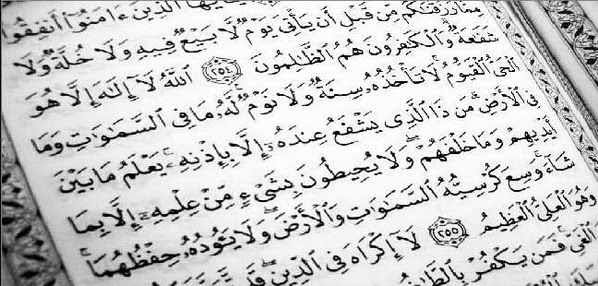 ٱلَّذِينَ ءَامَنُوٓا۟ أَنفِقُوا۟
مِمَّا رَزَقْنَٰكُم مِّن قَبْلِ أَن يَأْتِىَ يَوْمٌ لَّا بَيْعٌ فِيهِ وَلَا خُلَّةٌ وَلَا
شَفَٰعَةٌ وَٱلْكَٰفِرُونَ هُمُ ٱلظَّٰلِمُونَ ٢٥٤ ٱللَّهُ لَآ إِلَٰهَ إِلَّا هُوَ
ٱلْحَىُّ ٱلْقَيُّومُ لَا تَأْخُذُهُۥ سِنَةٌ وَلَا نَوْمٌ لَّهُۥ مَا فِى ٱلسَّمَٰوَٰتِ وَمَا
فِى ٱلْأَرْضِ مَن ذَا ٱلَّذِى يَشْفَعُ عِندَهُۥٓ إِلَّا بِإِذْنِهِۦ يَعْلَمُ مَا بَيْنَ
أَيْدِيهِمْ وَمَا خَلْفَهُمْ وَلَا يُحِيطُونَ بِشَىْءٍ مِّنْ عِلْمِهِۦٓ إِلَّا بِمَا
شَآءَ وَسِعَ كُرْسِيُّهُ ٱلسَّمَٰوَٰتِ وَٱلْأَرْضَ وَلَا يَـُٔودُهُۥ حِفْظُهُمَا
وَهُوَ ٱلْعَلِىُّ ٱلْعَظِيمُ ٢٥٥ لَآ إِكْرَاهَ فِى ٱلدِّينِ قَد
ٱلْغَىِّ فَمَن يَكْفُرْ